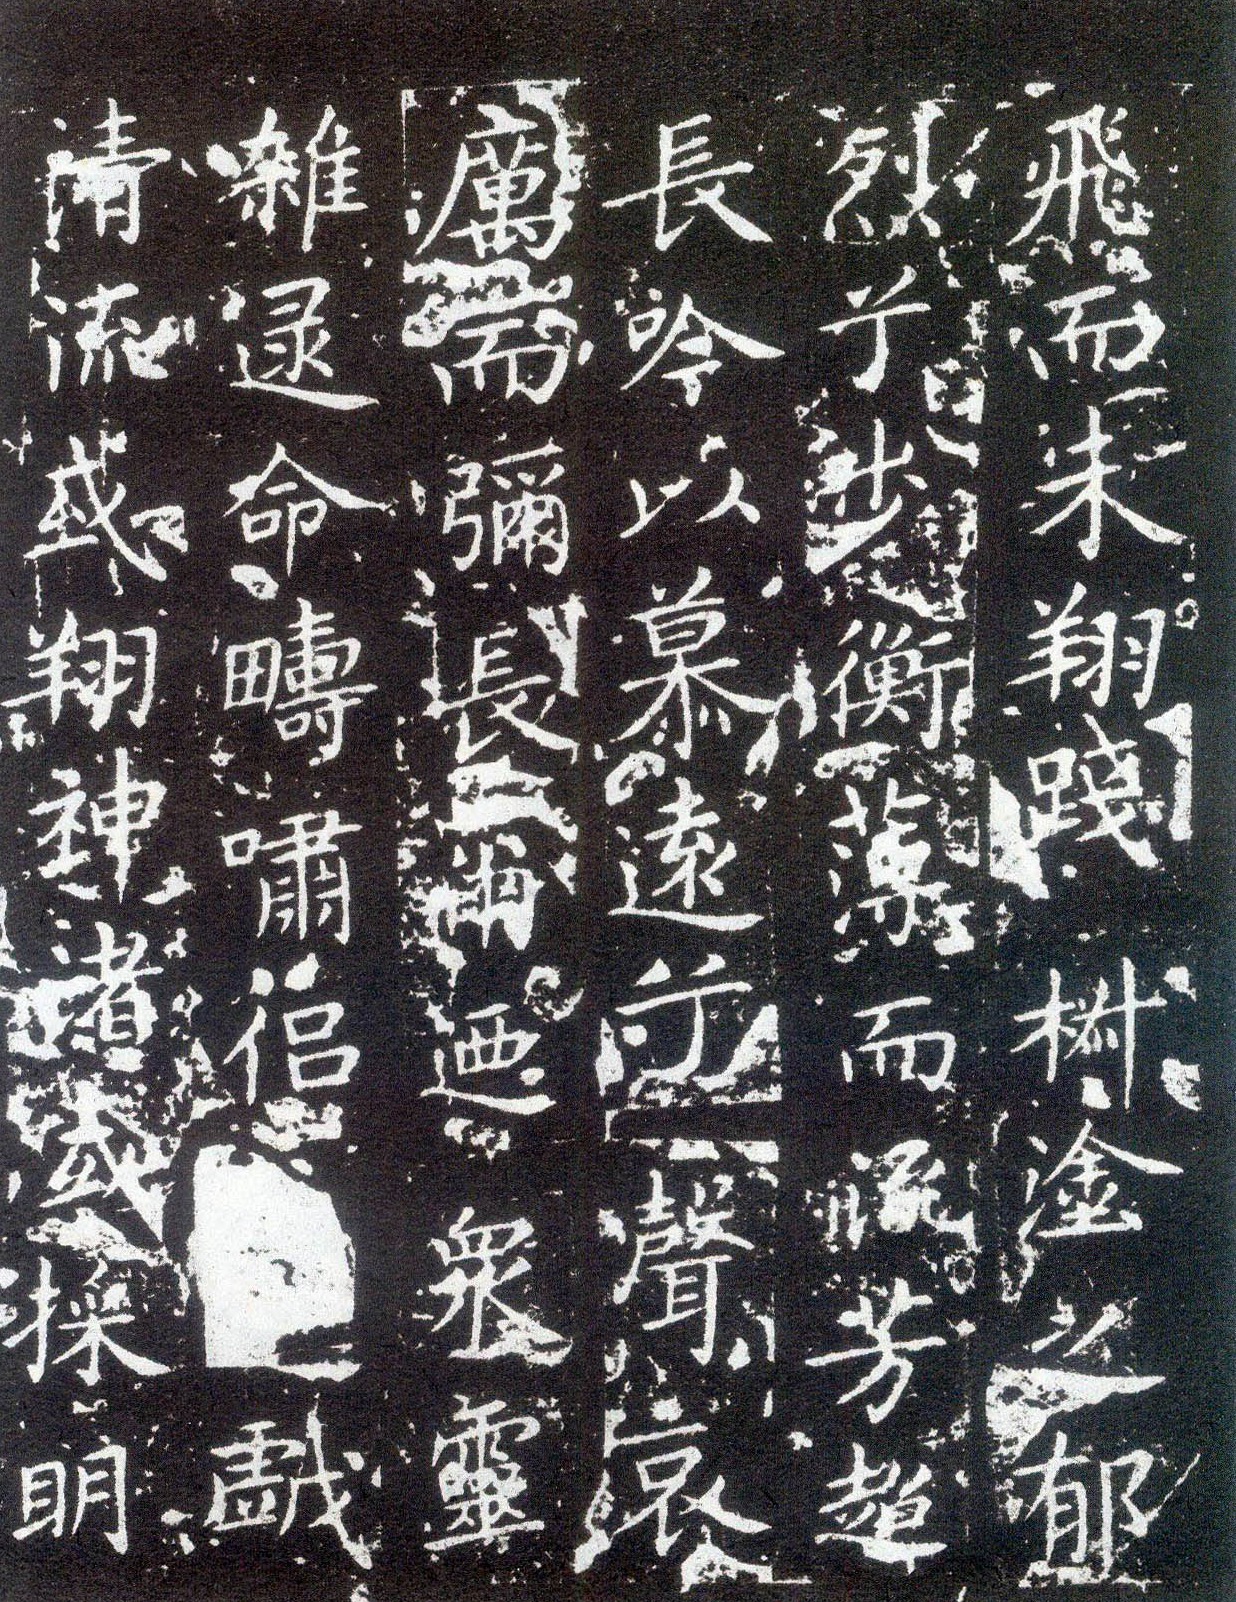 飛而未翔踐椒塗之郁
烈兮步衡薄而流芳超
長吟以慕遠兮聲哀
厲而彌長爾迺眾靈
雜遝命疇嘯侶戲
清流或翔神渚或採明